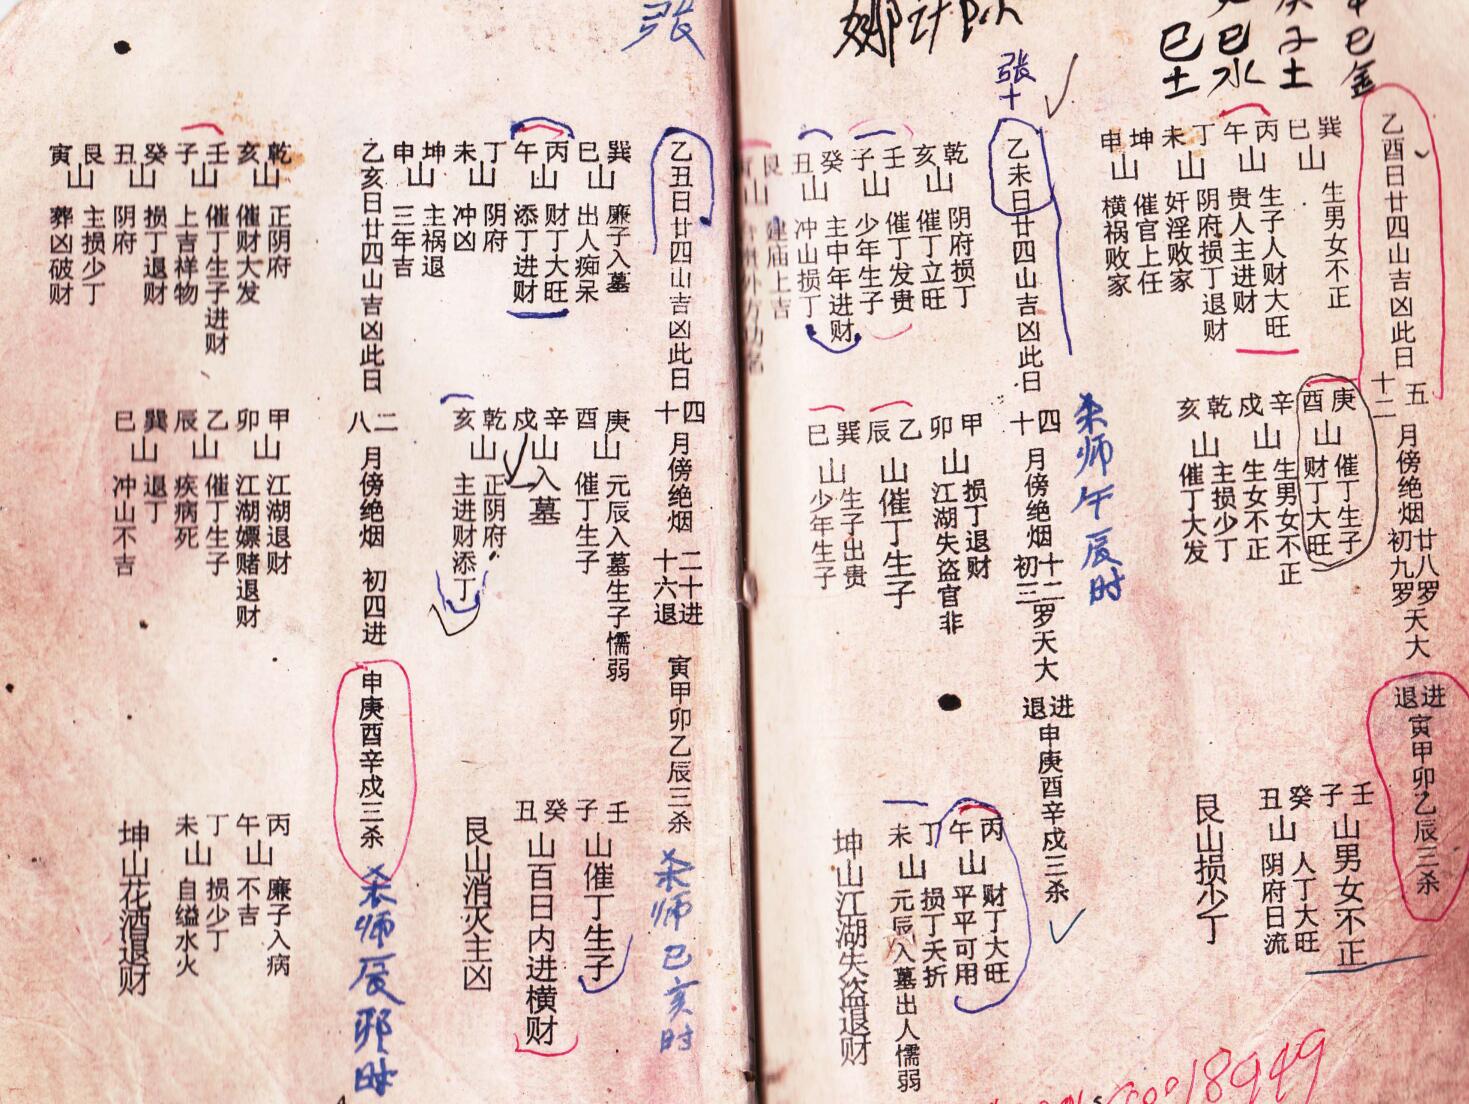 巳金
子土
巳水
巳土
张
乙酉日廿四山吉凶此日
五
十二
月傍绝烟
廿八罗
初九罗
天大
进
退
寅甲卯乙辰三杀
巽
巳
山
生男女不正
丙
午
山
生子人财大旺
贵人主进财
丁
未
山
阴府损丁退财
奸淫败家
坤
申
山
催官上任
横祸败家
庚
酉
山
催丁生子
财丁大旺
辛
戍
山
生男女不正
生女不正
乾
亥
山
主损少丁
催丁大发
壬
子
山男女不正
癸
丑
山
人丁大旺
阴府日流
艮山损少丁
杀师午辰时
张
十
乙未日廿四山吉凶此日
四
十
月傍绝烟
十二
初三
罗天大
进
退
申庚酉辛戍三杀
乾
亥
山
阴府损丁
催丁立旺
壬
子
山
催丁发贵
少年生子
癸
丑
山
主中年进财
冲山损丁
艮
山
建庙上吉
甲
卯
山
损丁退财
江湖失盗官非
乙
辰
山催丁生子
巽
巳
山
生子出贵
少年生子
丙
午
山
财丁大旺
平平可用
丁
未
山
损丁夭折
元辰入墓出人懦弱
坤山江湖失盗退财
018949
乙丑日廿四山吉凶此日
四
十
月傍绝烟
二十进
十六退
寅甲卯乙辰三杀
杀师巳亥时
巽
巳
山
廉子入墓
出人痴呆
丙
午
山
财丁大旺
添丁进财
丁
未
山
阴府
冲凶
坤
申
山
主祸退
三年吉
庚
酉
山
元辰入墓生子懦弱
催丁生子
辛
戍
山入墓
乾
亥
山
正阴府
主进财添丁
壬
子
山催丁生子
癸
丑
山百日内进横财
艮山消灭主凶
乙亥日廿四山吉凶此日
二
八
月傍绝烟
初四进
申庚酉辛戍三杀
杀师辰卯时
乾
亥
山
正阴府
催财大发
壬
子
山
催丁生子进财
上吉祥物
癸
丑
山
损丁退财
阴府
艮
寅
山
主损少丁
葬凶破财
甲
卯
山
江湖退财
江湖嫖赌退财
乙
辰
山
催丁生子
疾病死
巽
巳
山
退丁
冲山不吉
丙
午
山
廉子入病
不吉
丁
未
山
损少丁
自缢水火
坤山花酒退财